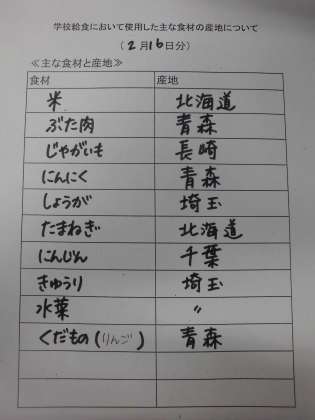 学校給食において使用した主な食材の産地について
(2月16日分)
≪主な食材と産地≫
食材 産地
米 北海道
ぶた肉 青森
じゃがいも 長崎
にんにく 青森
しょうが 埼玉
たまねぎ 北海道
にんじん 千葉
きゅうり 埼玉
水菜 〃
くだもの(りんご) 青森